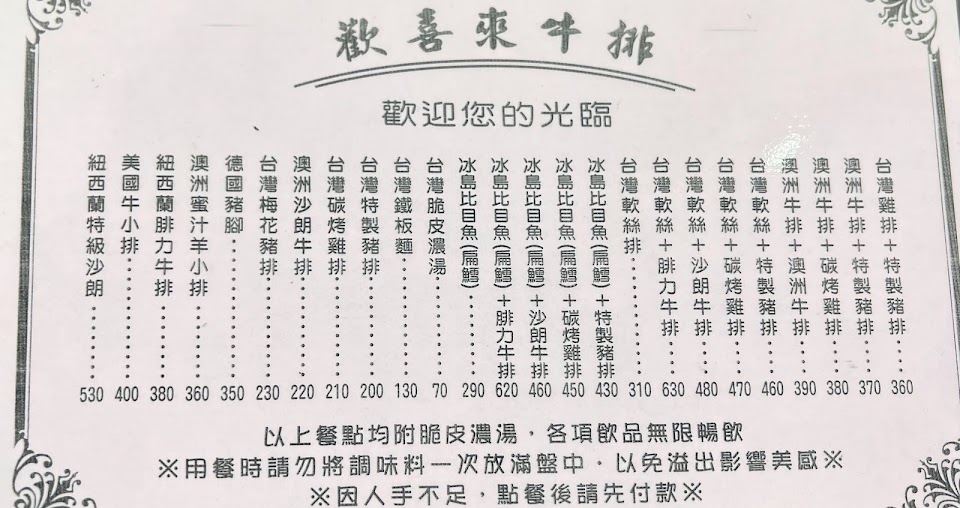 歡喜來牛排
歡迎您的光臨
紐西蘭特級沙朗……530
美國牛小排……400
紐西蘭腓力牛排……380
澳洲蜜汁羊小排……360
德國豬腳……350
台灣梅花豬排……230
澳洲沙朗牛排……220
台灣碳烤雞排……210
台灣特製豬排……200
台灣鐵板麵……130
台灣脆皮濃湯……70
冰島比目魚(扁鱈)……290
冰島比目魚(扁鱈)+腓力牛排 620
冰島比目魚(扁鱈)+沙朗牛排 460
冰島比目魚(扁鱈)+碳烤雞排 450
冰島比目魚(扁鱈)+特製豬排 430
台灣軟絲排……310
台灣軟絲+腓力牛排……630
台灣軟絲+沙朗牛排……480
台灣軟絲+碳烤雞排……470
台灣軟絲+特製豬排……460
澳洲牛排+澳洲牛排……390
澳洲牛排+碳烤雞排……380
澳洲牛排+特製豬排……370
台灣雞排+特製豬排……360
以上餐點均附脆皮濃湯,各項飲品無限暢飲
※用餐時請勿將調味料一次放滿盤中,以免溢出影響美感※
※因人手不足,點餐後請先付款※